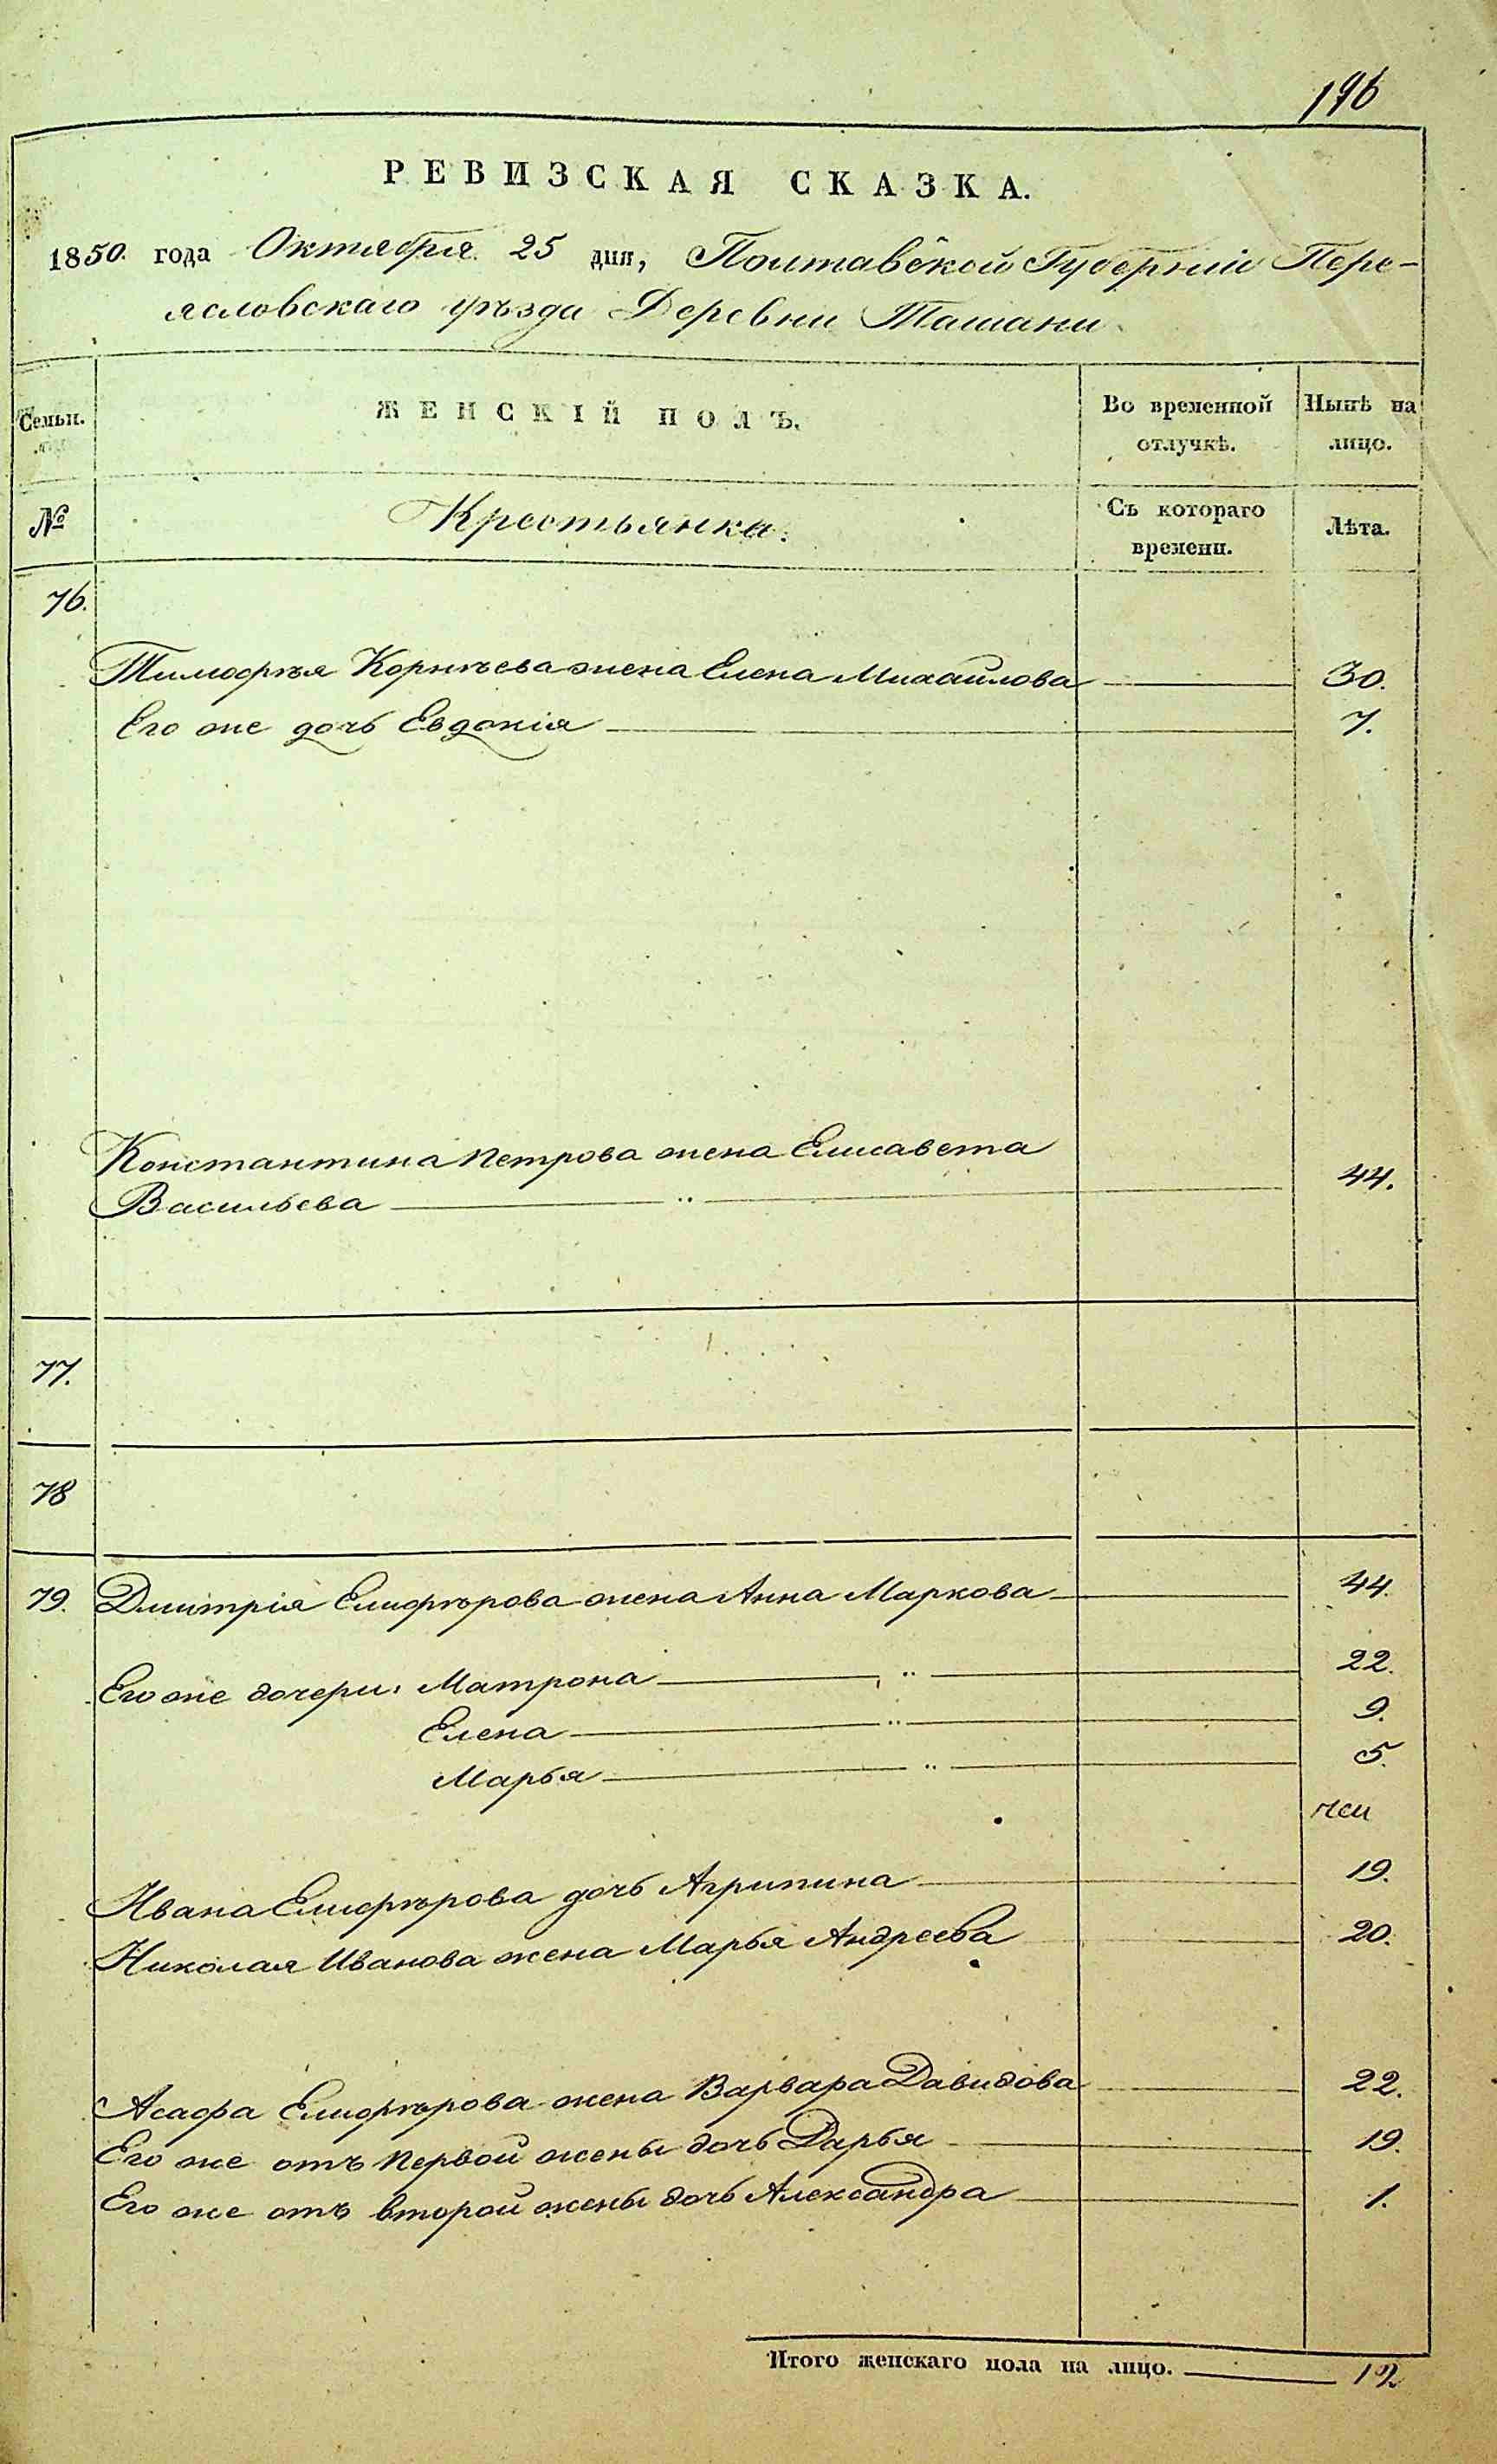 196
РЕВИЗСКАЯ СКАЗКА.
1850. года Октября 25 дня, Полтавской Губерніи Пере-
яслов­скаго уѣзда Деревни Ташани
Семьи.
ЖЕНСКІЙ ПОЛЪ.
Во временной отлучкѣ.
Нынѣ на лицо.
№
Крестьянка.
Съ котораго времени.
Лѣта.
76.
Тимофѣя Корнѣева жена Елена Михайлова 30.
Его же дочь Евдокія 7.
Константина Петрова жена Елисавета
Васильева 44.
77.
78
79. Дмитрія Елифѣрова жена Анна Маркова 44.
Его же дочери: Матрона 22.
Елена 9.
Марья 5.
Ивана Елифѣрова дочь Агрипина 19.
Николая Иванова жена Марья Андреева 20.
Асафа Елифѣрова жена Варвара Давидова 22.
Его же отъ первой жены дочь Дарья 19.
Его же отъ второй жены дочь Александра 1.
Итого женскаго пола на лицо. 12